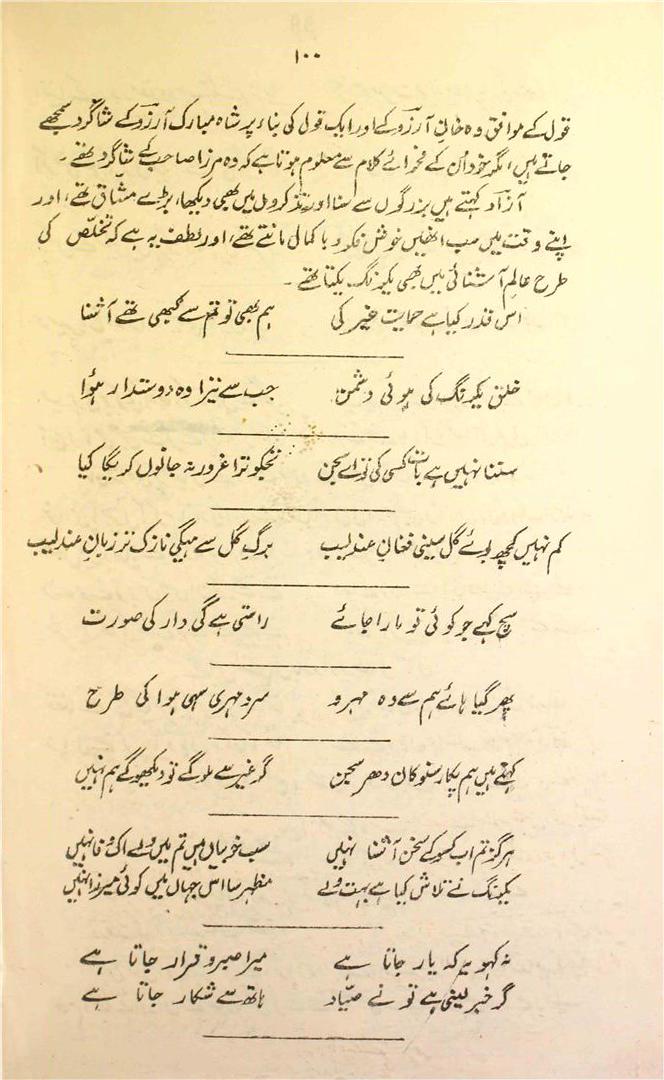 ۱۰۰
قول کے موافق وہ خانِ آرزو کے اور ایک قول کی بناء پر شاہ مبارک آرزو کے شاگرد سمجھے
جاتے ہیں، مگر خود اُن کے فحوائے کلام سے معلوم ہوتا ہے کہ وہ مرزا صاحب کے شاگرد تھے۔
آزاد کہتے ہیں بزرگوں سے سنا اور تذکروں میں بھی دیکھا، بڑے مشّاق تھے، اور
اپنے وقت میں سب انھیں خوش فکر و با کمال مانتے تھے، اور لطف یہ ہے کہ تخلّص کی
طرح عالمِ آشنائی میں بھی یکرنگ یکتا تھے۔
اس قدر کیا ہے حمایت غیر کی ہم بھی تو تم سے کبھی تھے آشنا
خلق یکرنگ کی ہوئی دشمن جب سے تیرا وہ دوستدار ہوُا
سنتا نہیں ہے بات کسی کی تو اے سجن تجکو ترا غرور نہ جانوں کریگا کیا
کم نہیں کچھ بوئے گل سیتی فغانِ عندلیب برگِ گل سے ہیگی نازک تر زبانِ عندلیب
سچ کہے جو کوئی تو مارا جائے راستی ہے گی دار کی صورت
پھر گیا ہائے ہم سے وہ مہرو سرد مہری سہی ہوا کی طرح
کہتے ہیں ہم پکار سنو کان دھر سجن گر غیر سے ملو گے تو دیکھو گے ہم نہیں
ہرگز تم اب کسو کے سخن آشنا نہیں سب خوبیاں ہیں تم میں ولے اک وفا نہیں
یکرنگ نے تلاش کیا ہے بہت ولے مظہر سا اس جہاں میں کوئی میرزا نہیں
نہ کہو یہ کہ یار جاتا ہے میرا صبر و قرار جاتا ہے
گر خبر لینی ہے تو لے صیّاد ہاتھ سے شکار جاتا ہے